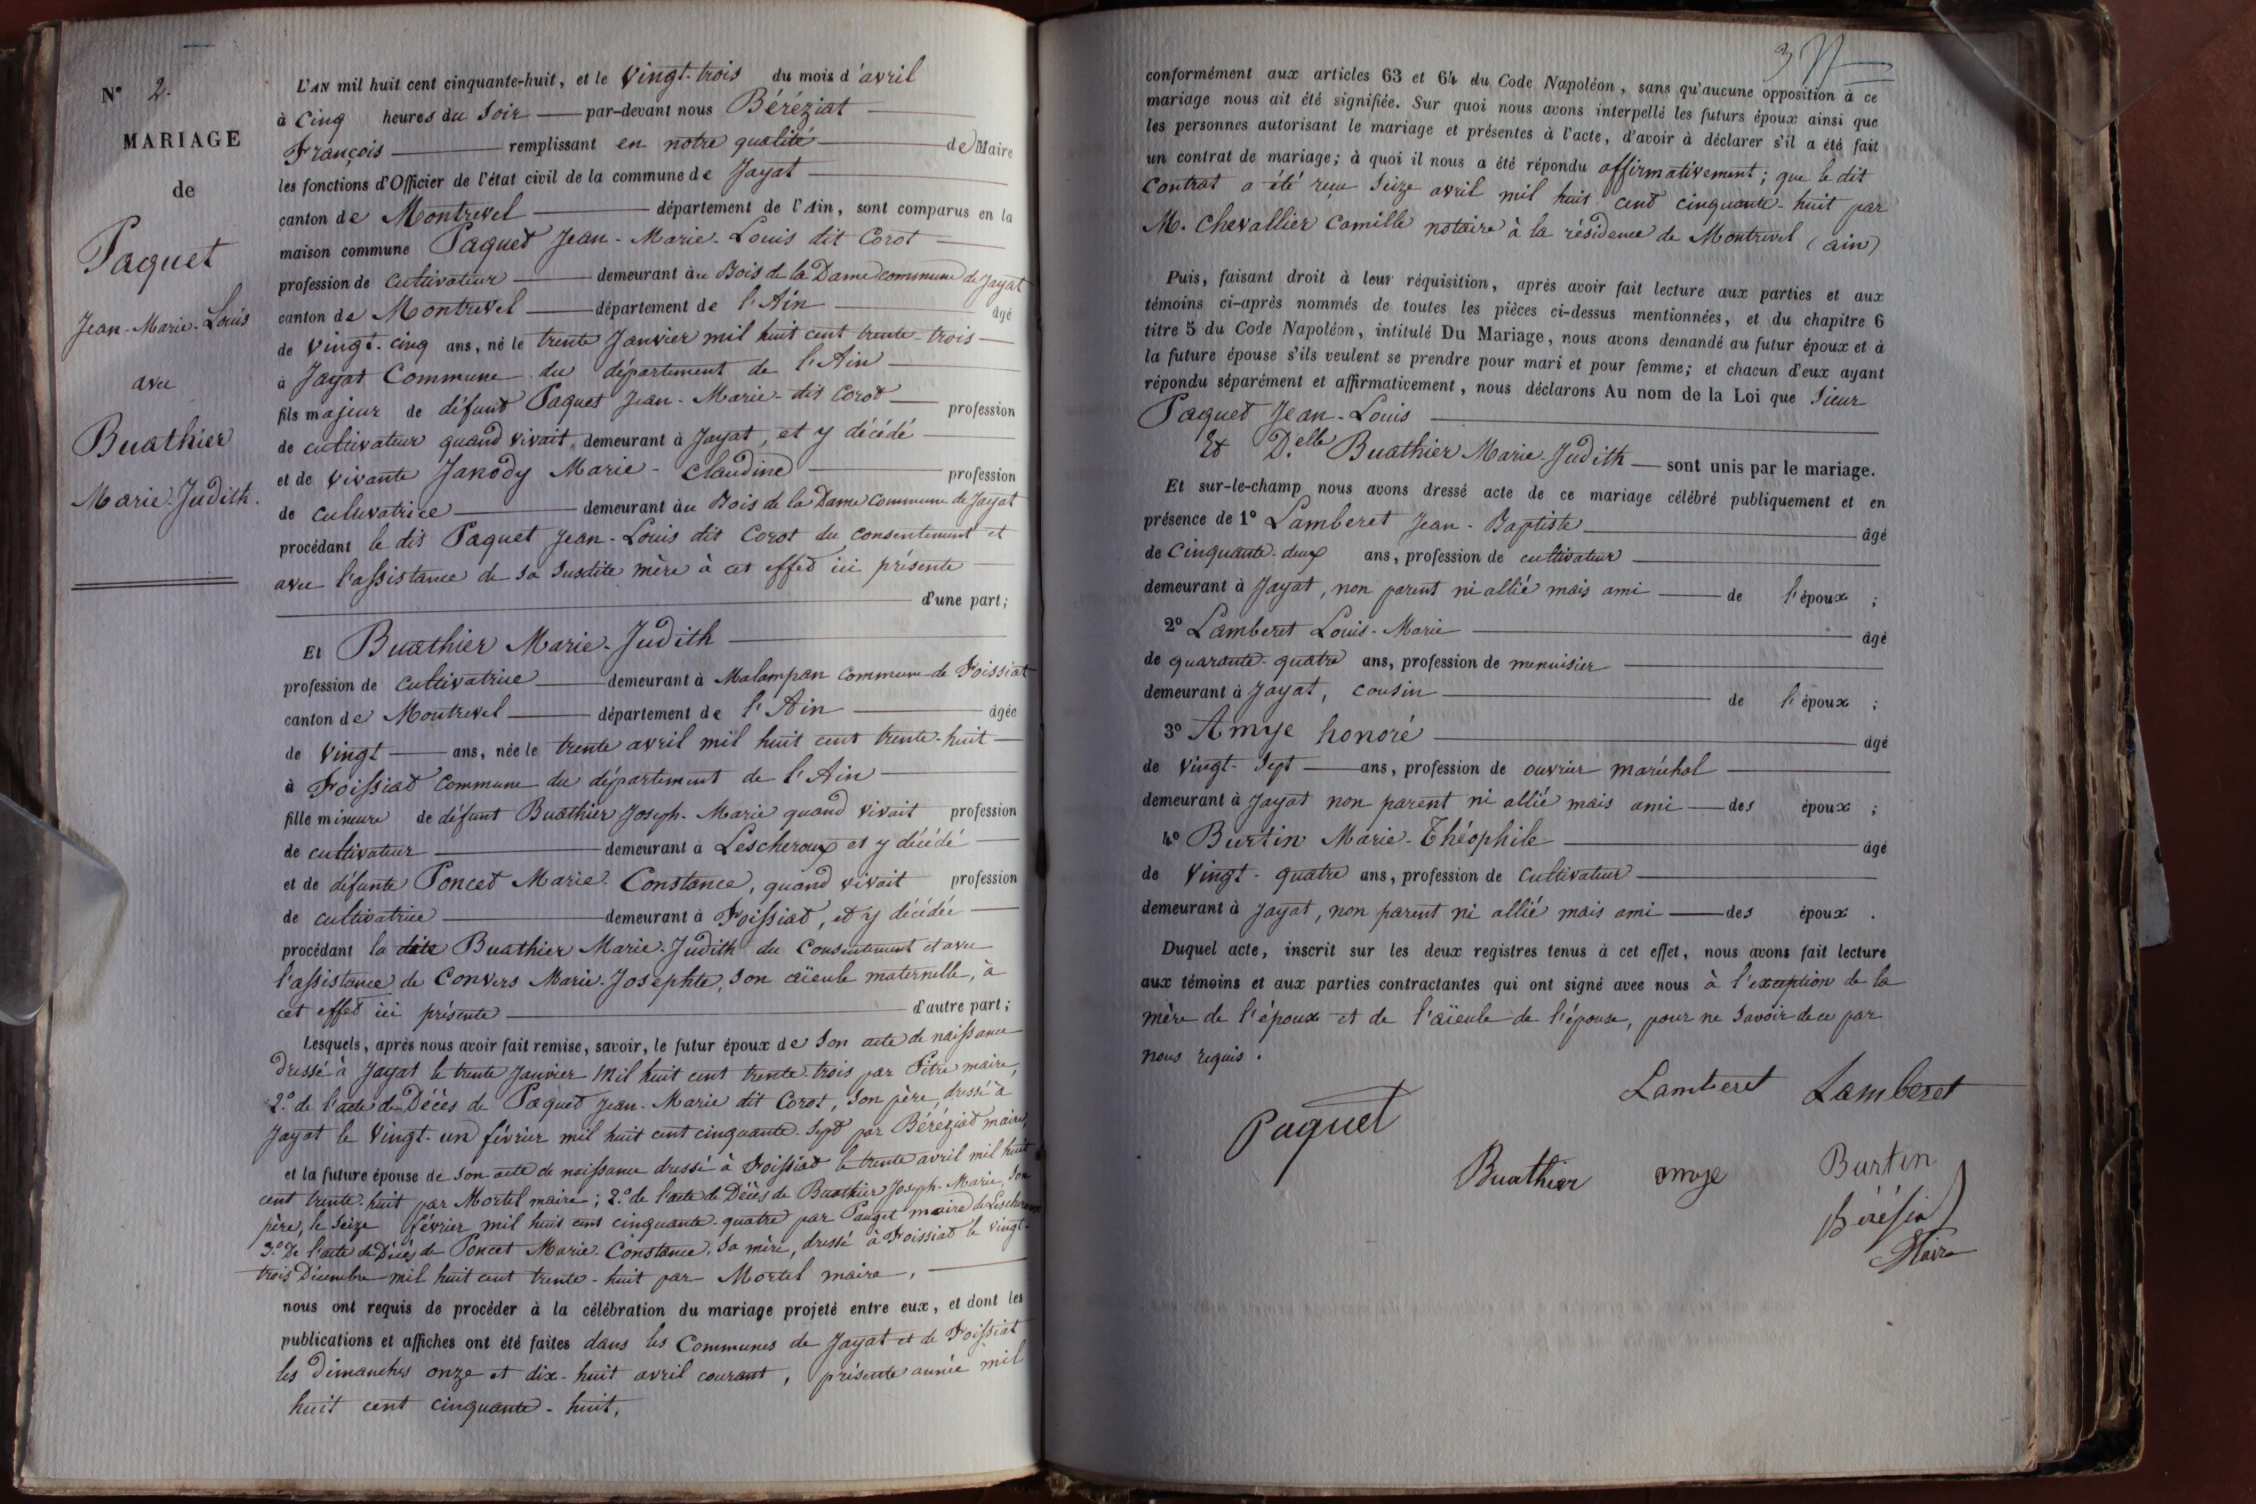 N° 2.
MARIAGE
de
Paquet
Jean-Marie-Louis
avec
Buathier
Marie-Judith.
L'AN mil huit cent cinquante-huit, et le Vingt-trois du mois d'avril
à Cinq heures du Soir par-devant nous Béréziat
François remplissant en notre qualité de Maire
les fonctions d'Officier de l'état civil de la commune de Jayat
canton de Montrevel département de l'Ain, sont comparus en la
maison commune Paquet Jean-Marie-Louis dit Corot
profession de cultivateur demeurant au Bois de la Dame commune de Jayat
canton de Montrevel département de l'Ain âgé
de Vingt-cinq ans, né le trente Janvier mil huit cent trente-trois
à Jayat Commune du département de l'Ain
fils majeur de défunt Paquet Jean-Marie-dit Corot profession
de cultivateur quand vivait, demeurant à Jayat, et y décédé
et de vivante Janody Marie-Claudine profession
de cultivatrice demeurant au Bois de la Dame Commune de Jayat
procédant le dit Paquet Jean-Louis dit Corot du consentement et
avec l'assistance de sa susdite mère à cet effet ici présente
d'une part;
Et Buathier Marie-Judith
profession de cultivatrice demeurant à Malampan commune de Foissiat
canton de Montrevel département de l'Ain âgée
de Vingt ans, née le trente avril mil huit cent trente-huit
à Foissiat Commune du département de l'Ain
fille mineure de défunt Buathier Joseph-Marie quand vivait profession
de cultivateur demeurant à Lescheroux et y décédé
et de défunte Poncet Marie-Constance, quand vivait profession
de cultivatrice demeurant à Foissiat, et y décédée
procédant la dite Buathier Marie-Judith du Consentement et avec
l'assistance de Convers Marie-Josephte, son aïeule maternelle, à
cet effet ici présente d'autre part;
Lesquels, après nous avoir fait remise, savoir, le futur époux de Son acte de naissance
dressé à Jayat le trente Janvier mil huit cent trente-trois par Pitre maire,
2.° de l'acte de Décès de Paquet Jean-Marie dit Corot, son père, dressé à
Jayat le Vingt-un février mil huit cent cinquante-sept par Béréziat maire,
et la future épouse de son acte de naissance dressé à Foissiat le trente avril mil huit
cent trente-huit par Mortel maire; 2.° de l'acte de Décès de Buathier Joseph-Marie, Son
père, le Seize février mil huit cent cinquante-quatre par Pauget maire de Lescheroux
3.° De l'acte de Décès de Poncet Marie-Constance, Sa mère, dressé à Foissiat le Vingt-
trois Décembre mil huit cent trente-huit par Mortel maire,
nous ont requis de procéder à la célébration du mariage projeté entre eux, et dont les
publications et affiches ont été faites dans les Communes de Jayat et de Foissiat
les dimanches onze et dix-huit avril courant, présente année mil
huit cent cinquante-huit,
conformément aux articles 63 et 64 du Code Napoléon, sans qu'aucune opposition à ce
mariage nous ait été signifiée. Sur quoi nous avons interpellé les futurs époux ainsi que
les personnes autorisant le mariage et présentes à l'acte, d'avoir à déclarer s'il a été fait
un contrat de mariage; à quoi il nous a été répondu affirmativement; que le dit
Contrat a été reçu Seize avril mil huit cent cinquante-huit par
M. Chevallier Camille notaire à la résidence de Montrevel (ain)
Puis, faisant droit à leur réquisition, après avoir fait lecture aux parties et aux
témoins ci-après nommés de toutes les pièces ci-dessus mentionnées, et du chapitre 6
titre 5 du Code Napoléon, intitulé Du Mariage, nous avons demandé au futur époux et à
la future épouse s'ils veulent se prendre pour mari et pour femme; et chacun d'eux ayant
répondu séparément et affirmativement, nous déclarons Au nom de la Loi que Sieur
Paquet Jean-Louis
Et D.elle Buathier Marie-Judith sont unis par le mariage.
Et sur-le-champ nous avons dressé acte de ce mariage célébré publiquement et en
présence de 1° Lamberet Jean-Baptiste âgé
de Cinquante-deux ans, profession de cultivateur
demeurant à Jayat, non parent ni allié mais ami de l'époux;
2° Lamberet Louis-Marie âgé
de quarante-quatre ans, profession de menuisier
demeurant à Jayat, cousin de l'époux;
3° Amye honoré âgé
de Vingt-Sept ans, profession de ouvrier maréchal
demeurant à Jayat non parent ni allié mais ami des époux;
4° Burtin Marie-Théophile âgé
de Vingt-quatre ans, profession de Cultivateur
demeurant à Jayat, non parent ni allié mais ami des époux.
Duquel acte, inscrit sur les deux registres tenus à cet effet, nous avons fait lecture
aux témoins et aux parties contractantes qui ont signé avec nous à l'exception de la
mère de l'époux et de l'aïeule de l'épouse, pour ne savoir de ce par
nous requis.
Lamberet Lamberet
Paquet
Buathier amye Burtin
Béréziat
Maire